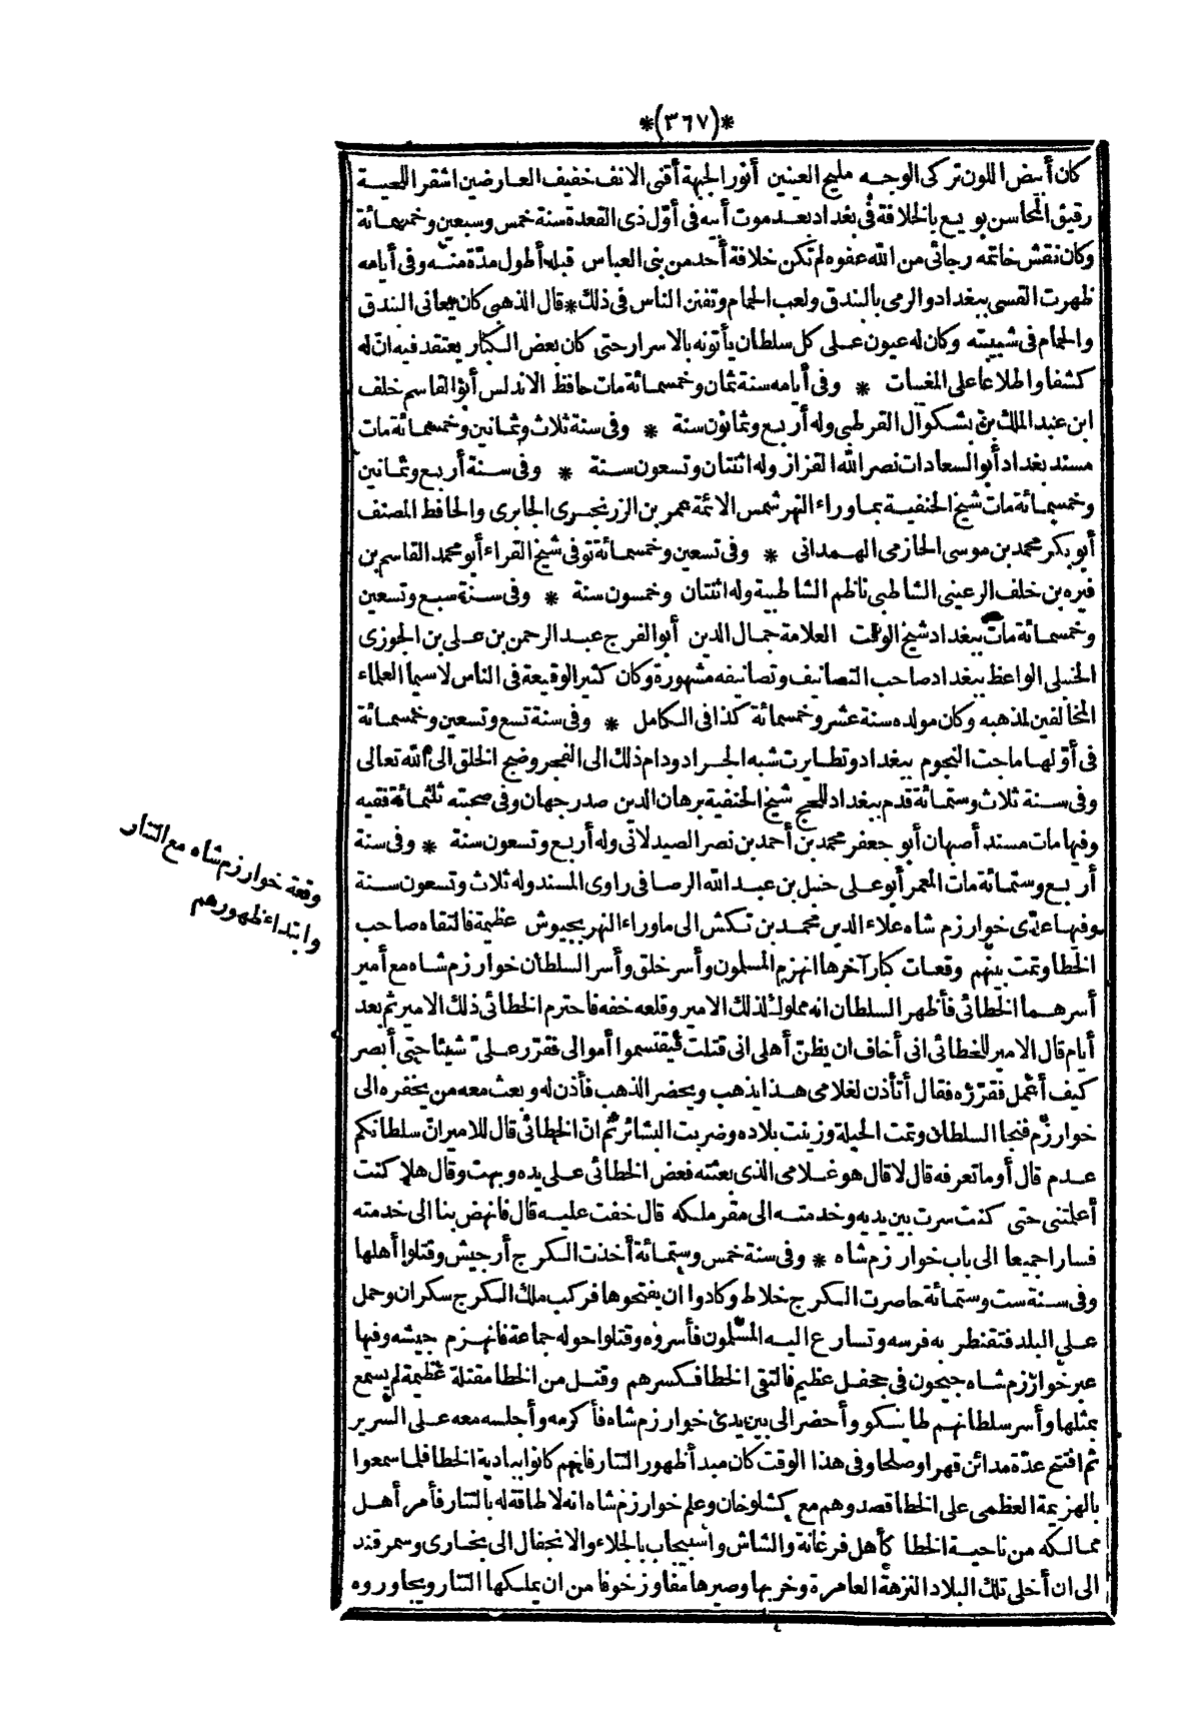 *(٣٦٧)*
كان أبيض اللون تركى الوجه مليح العينين أنور الجبهة أقنى الانف خفيف العارضين اشقر اللحية
رقيق المحاسن بويع بالخلافة فى بغداد بعد موت أبيه فى أوّل ذى القعدة سنة خمس وسبعين وخمسمائة
وكان نقش خاتمه رجائى من الله عفوه لم تكن خلافة أحد من بنى العباس قبله أطول مدّة منه وفى أيامه
ظهرت القسى ببغداد والرمى بالبندق ولعب الحمام وتفنن الناس فى ذلك * قال الذهبى كان يعانى البندق
والحمام فى شبيبته وكان له عيون على كل سلطان يأتونه بالاسرار حتى كان بعض الكبار يعتقد فيه انّ له
كشفا واطلاعا على المغيبات * وفى أيامه سنة ثمان وخمسمائة مات حافظ الاندلس أبو القاسم خلف
ابن عبد الملك بن بشكوال القرطبى وله أربع وثمانون سنة * وفى سنة ثلاث وثمانين وخمسمائة مات
مسند بغداد أبو السعادات نصر الله القزاز وله اثنتان وتسعون سنة * وفى سنة أربع وثمانين
وخمسمائة مات شيخ الحنفية بماوراء النهر شمس الائمة عمر بن الزرنجرى الجابرى والحافظ المصنف
أبو بكر محمد بن موسى الحازمى الهمدانى * وفى تسعين وخمسمائة توفى شيخ القراء أبو محمد القاسم بن
فيره بن خلف الرعينى الشاطبى ناظم الشاطبية وله اثنتان وخمسون سنة * وفى سنة سبع وتسعين
وخمسمائة مات ببغداد شيخ الوقت العلامة جمال الدين أبو الفرج عبد الرحمن بن على بن الجوزى
الحنبلى الواعظ ببغداد صاحب التصانيف وتصانيفه مشهورة وكان كثير الوقيعة فى الناس لاسيما العلماء
المخالفين لمذهبه وكان مولده سنة عشر وخمسمائة كذا فى الكامل * وفى سنة تسع وتسعين وخمسمائة
فى أوّلها ماجت النجوم ببغداد وتطايرت شبه الجراد ودام ذلك الى الفجر وضج الخلق الى الله تعالى
وفى سنة ثلاث وستمائة قدم بغداد للحج شيخ الحنفية برهان الدين صدر جهان وفى صحبته ثلثمائة فقيه
وفيها مات مسند أصبهان أبو جعفر محمد بن أحمد بن نصر الصيدلانى وله أربع وتسعون سنة * وفى سنة
أربع وستمائة مات المعمر أبو على حنبل بن عبد الله الرصافى راوى المسند وله ثلاث وتسعون سنة
وفيها عدّى خوارزم شاه علاء الدين محمد بن تكش الى ماوراء النهر بجيوش عظيمة فالتقاه صاحب
الخطا وتمت بينهم وقعات كبار آخرها انهزم المسلمون وأسر خلق وأسر السلطان خوارزم شاه مع أمير
أسرهما الخطائى فأظهر السلطان انه مملوك لذلك الامير وقلعه خفه فاحترم الخطائى ذلك الامير ثم بعد
أيام قال الامير للخطائى انى أخاف ان يظنّ أهلى انى قتلت فيقتسموا أموالى فقرّر علىّ شيئا حتى أبصر
كيف أعمل فقرّره فقال أتأذن لغلامى هذا يذهب ويحضر الذهب فأذن له وبعث معه من يخفره الى
خوارزم فنجا السلطان وتمت الحيلة وزينت بلاده وضربت البشائر ثم انّ الخطائى قال للامير انّ سلطانكم
عدم قال أوما تعرفه قال لا قال هو غلامى الذى بعثته فعض الخطائى على يده وبهت وقال هلا كنت
أعلمتنى حتى كنت سرت بين يديه وخدمته الى مقر ملكه قال خفت عليه قال فانهض بنا الى خدمته
فسارا جميعا الى باب خوارزم شاه * وفى سنة خمس وستمائة أخذت الكرج أرجيش وقتلوا أهلها
وفى سنة ست وستمائة حاصرت الكرج خلاط وكادوا ان يفتحوها فركب ملك الكرج سكران وحمل
على البلد فتقنطر به فرسه وتسارع اليه المسلمون فأسروه وقتلوا حوله جماعة فانهزم جيشه وفيها
عبر خوارزم شاه جيحون فى جحفل عظيم فالتقى الخطا فكسرهم وقتل من الخطا مقتلة عظيمة لم يسمع
بمثلها وأسر سلطانهم طاينكو وأحضر الى بين يدى خوارزم شاه فأكرمه وأجلسه معه على السرير
ثم افتتح عدّة مدائن قهرا وصلحا وفى هذا الوقت كان مبدأ ظهور التتار فانهم كانوا ببادية الخطا فلما سمعوا
بالهزيمة العظمى على الخطا قصدوهم مع كشلوخان وعلم خوارزم شاه انه لا طاقة له بالتتار فأمر أهل
ممالكه من ناحية الخطا كأهل فرغانة والشاش واسبيجاب بالجلاء والانجفال الى بخارى وسمرقند
الى ان أخلى تلك البلاد النزهة العامرة وخربها وصيرها مفاوز خوفا من ان يملكها التتار ويجاوروه
وقعة خوارزم شاه مع التتار
وابتداء ظهورهم